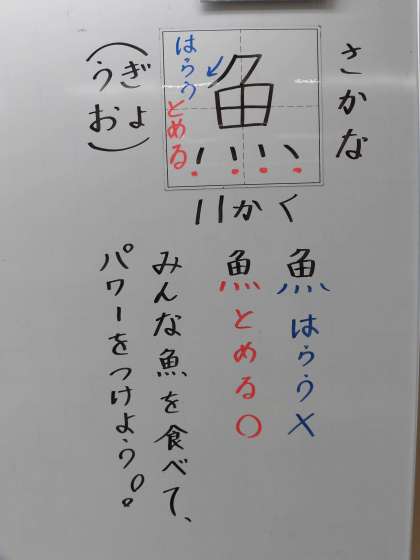 さかな
魚
はらう
とめる
(ぎょ
うお)
11かく
魚はらう×
魚とめる○
みんな魚を食べて、
パワーをつけよう!!